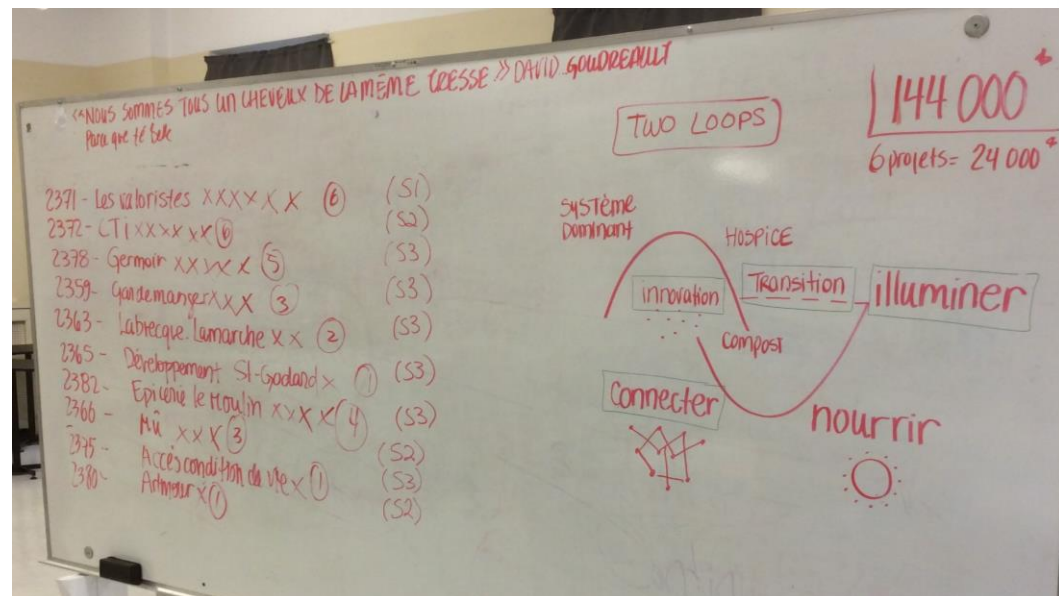 <<NOUS SOMMES TOUS UN CHEVEUX DE LA MÊME TRESSE.>> DAVID GOUDREAULT
Para que té
2371 - Les valoristes XXXXXX (6) (S1)
2372 - CTi XXXXXX (6) (S2)
2378 - Germoir XXXXX (5) (S3)
2359 - Gardemanger XXX (3) (S3)
2363 - Labrecque.Lamarche XX (2) (S3)
2365 - Développement St-Godard X (1) (S3)
2382 - Epicerie le Moulin XXXX (4) (S3)
2366 - Mû XXX (3) (S2)
2375 - Accès condition de vie X (1) (S3)
2380 - X (1) (S2)
TWO LOOPS
144 000*
6 projets = 24 000*
SYSTÈME
DOMINANT
HOSPICE
innovation
TRANSITION
illuminer
Compost
Connecter
nourrir